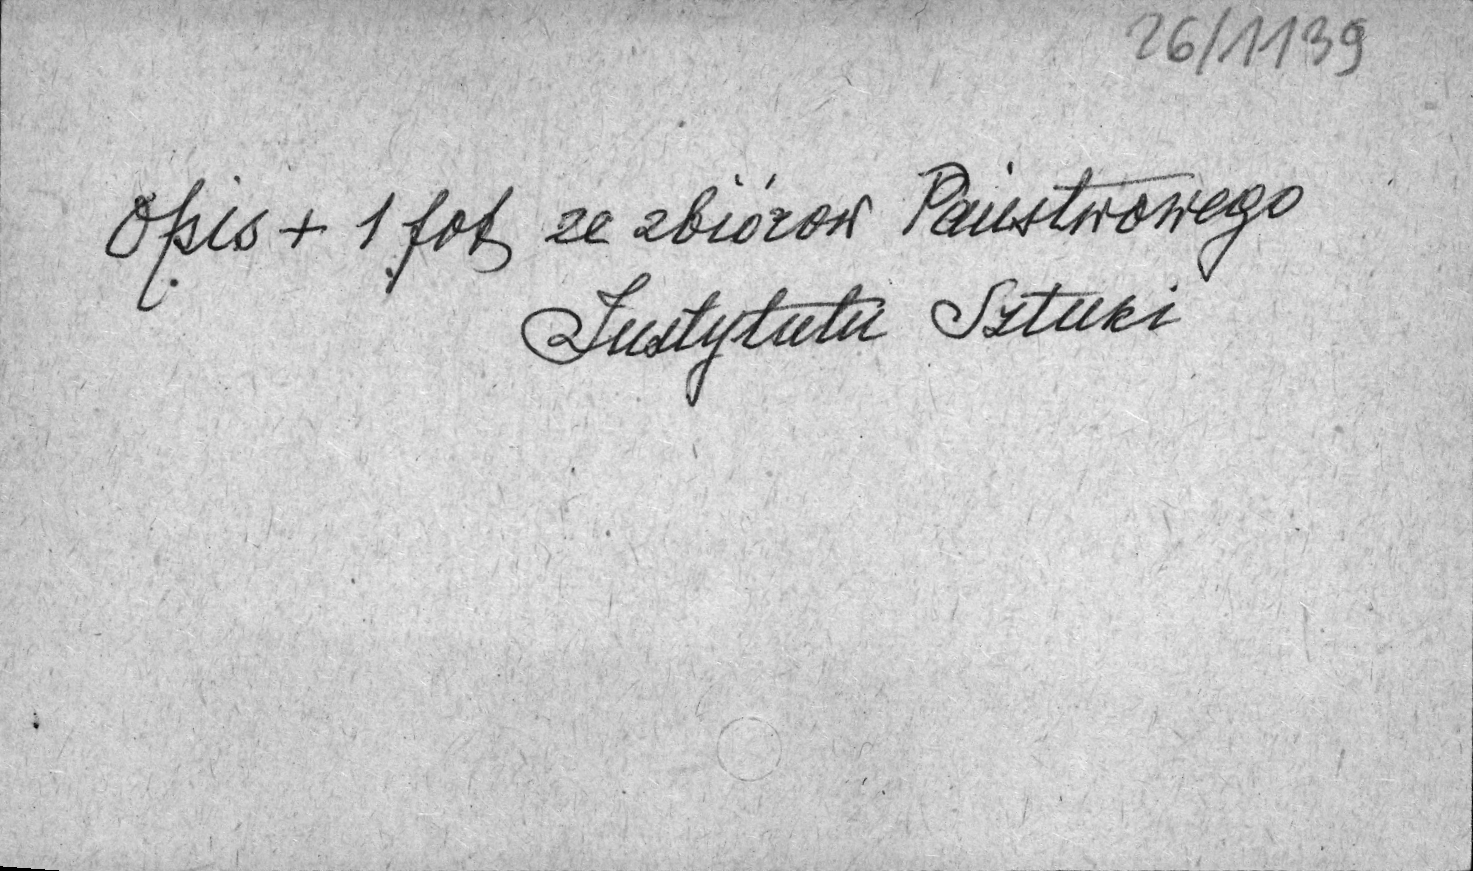 26/1139
Opis + 1 fot ze zbiórow Państwowego
Instytutu Sztuki